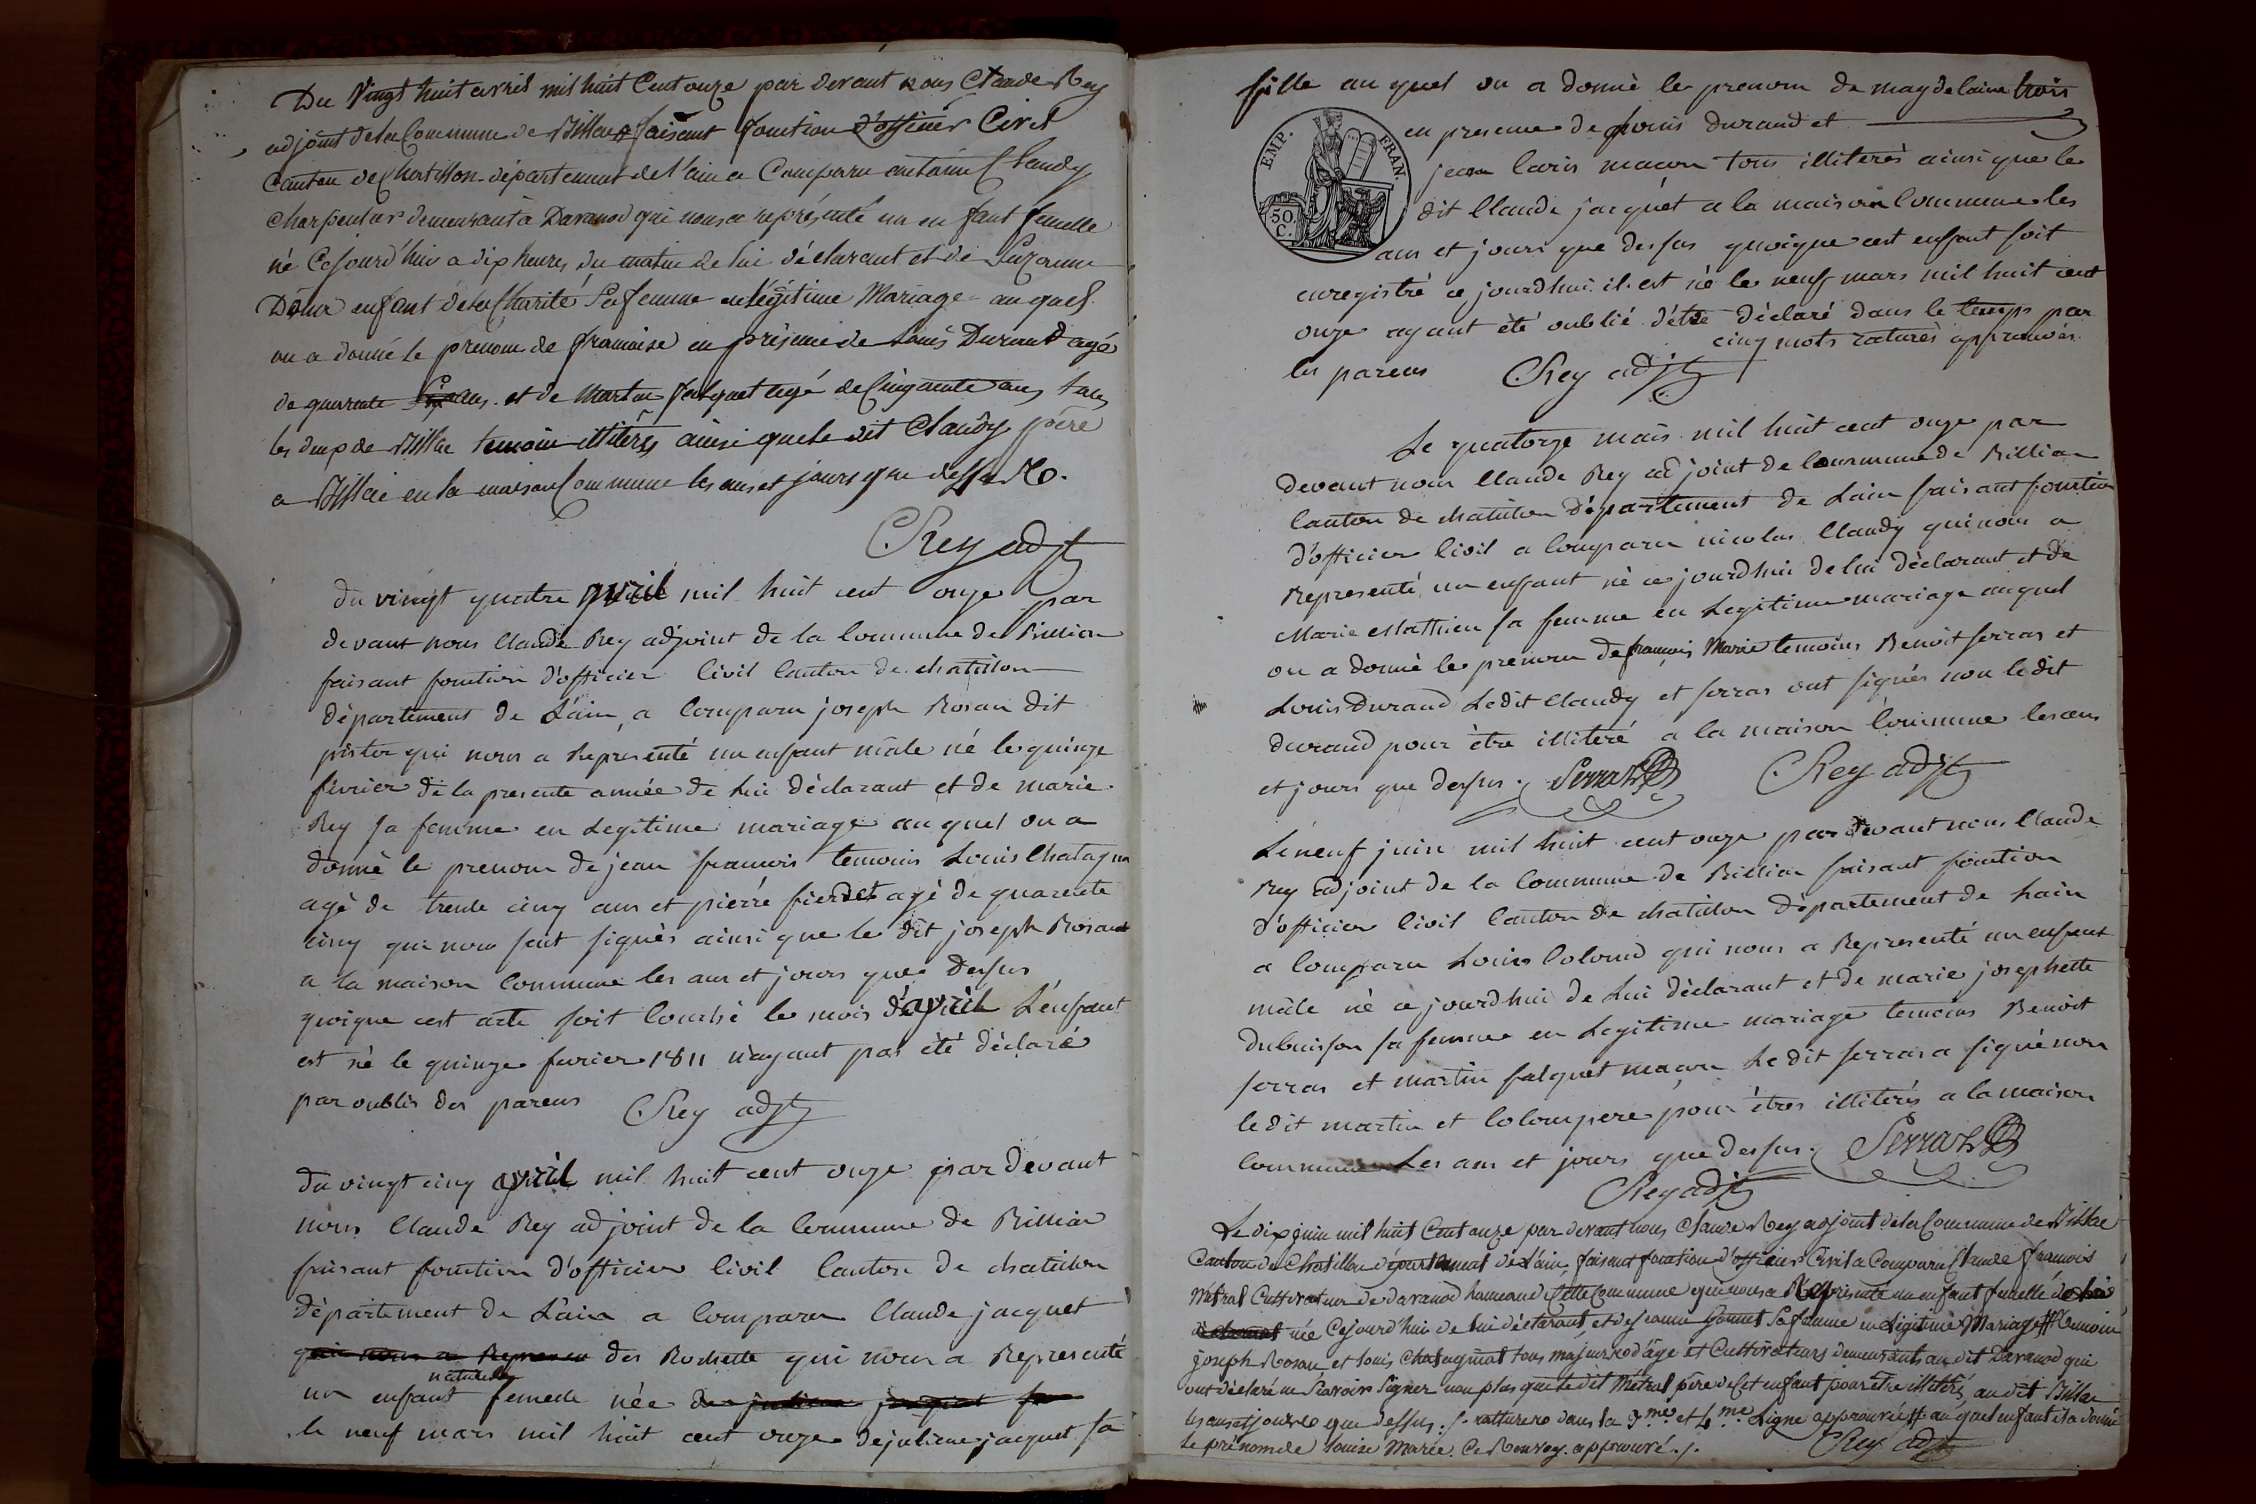 Du Vingt huit avril mil huit Cent onze par devant nous Claude Rey
adjoint de la Commune de Billiat faisant fonction d'officier Civil
Canton de Chatillon département de l'ain a Comparu antoine Claudy
Charpentier demeurant a Davanod qui nous a représenté un enfant femelle
né Cejourd'hui a dix heures du matin de lui déclarant et de Suzanne
enfant de la Charité Sa femme en légitime Mariage auquel
on a donné le prenom de francoise en présence de Louis Durand agé
de quarante ans et de Martin falquet agé de Cinquante ans tous
les deux de Billiat temoin illiterés ainsi que le dit Claudy père
a Billiat en la maison Commune les ans et jours que dessus
CRey adjt
du vingt quatre avril mil huit cent onze par
devant nous Claude Rey adjoint de la Commune de Billiat
faisant fonction d'officier Civil Canton de chatillon
département de L'ain a Comparu joseph Rosan dit
pistor qui nous a Représenté un enfant mâle né le quinze
fevrier de la presente année de lui déclarant et de marie
Rey sa femme en Legitime mariage auquel on a
donné le prenom de jean francois temoins Louis Chatagna
agé de trente cinq ans et pierre fierdet agé de quarente
cinq qui nous sont signés ainsi que le dit joseph Rosand
a la maison Commune les ans et jours que dessus
quoique cest acte soit Couché le mois d'avril L'enfant
est né le quinze fevrier 1811 n'ayant pas été déclaré
par oublis des parens CRey adjt
du vingt cinq avril mil huit cent onze par devant
nous Claude Rey adjoint de la Commune de Billiat
faisant fonction d'officier Civil Canton de chatillon
département de L'ain a Comparu Claude jacquet
qui nous a Represen des Rochette qui nous a Représenté
naturelle
un enfant femelle née de
le neuf mars mil huit cent onze de juliene jacquet sa
fille auquel on a donné le prenom de magdelaine trois
EMP. FRAN.
50 C.
en presence de Louis durand et
jean Laris macon tous illiterés ainsi que le
dit Claude jacquet a la maison Commune les
ans et jours que dessus quoique cest enfant soit
enregistré ce jourdhui il est né le neuf mars mil huit cent
onze ayant été oublié d'être déclaré dans le temps par
cinq mots raturés approuvés
les parens CRey adjt
Le quatorze mais mil huit cent onze par
devant nous Claude Rey adjoint de Commune de Billiat
Canton de chatillon département de Lain faisant fonction
d'officier Civil a Comparu nicolas Claudy qui nous a
Representé un enfant né ce jourdhui de lui déclarant et de
Marie Mathieu sa femme en Legitime mariage auquel
on a donné le prenom de francois Marie temoins Benoit serras et
Louis Durand Ledit Claudy et serras ont signés non ledit
durand pour être illiteré a la maison Commune les ans
et jours que dessus. Serras CRey adjt
Le neuf juin mil huit cent onze par devant nous Claude
Rey adjoint de la Commune de Billiat faisant fonction
d'officier Civil Canton de chatillon département de Lain
a Comparu Louis Colomd qui nous a Representé un enfant
mâle né ce jourdhui de Lui déclarant et de marie josephette
Dubuisson sa femme en Legitime mariage temoins Benoit
serras et martin falquet macon Le dit serras a signé non
le dit martin et Colom pere pour êtres illiterés a la maison
Commune Les ans et jours que dessus. Serras
CRey adjt
Le dix juin mil huit Cent onze par devant nous Claude Rey adjoint de la Commune de Billiat
Canton de Chatillon département de L'ain faisant fonction d'officier Civil a Comparu Claude francois
Métral Cultivateur de davanod hameau de Cette Commune qui nous a Représenté un enfant femelle de lui
déclarant née Cejourd'hui de lui déclarant, et de jeanne Sa femme en Légitime Mariage # temoin
joseph Rosan et Louis Chatagnat tous majeur d'âge et Cultivateurs demeurants au dit Davanod qui
ont déclaré ne Scavoir Signer non plus que le dit Métral père de Cet enfant pour être illiterés, au dit Billiat
les ans et jour que dessus. /. ratture dans la 3me et 4me Ligne approuvé # auquel enfant il a donné
le prénom de Louise Marie. Ce Renvoy approuvé. /. CRey adjt